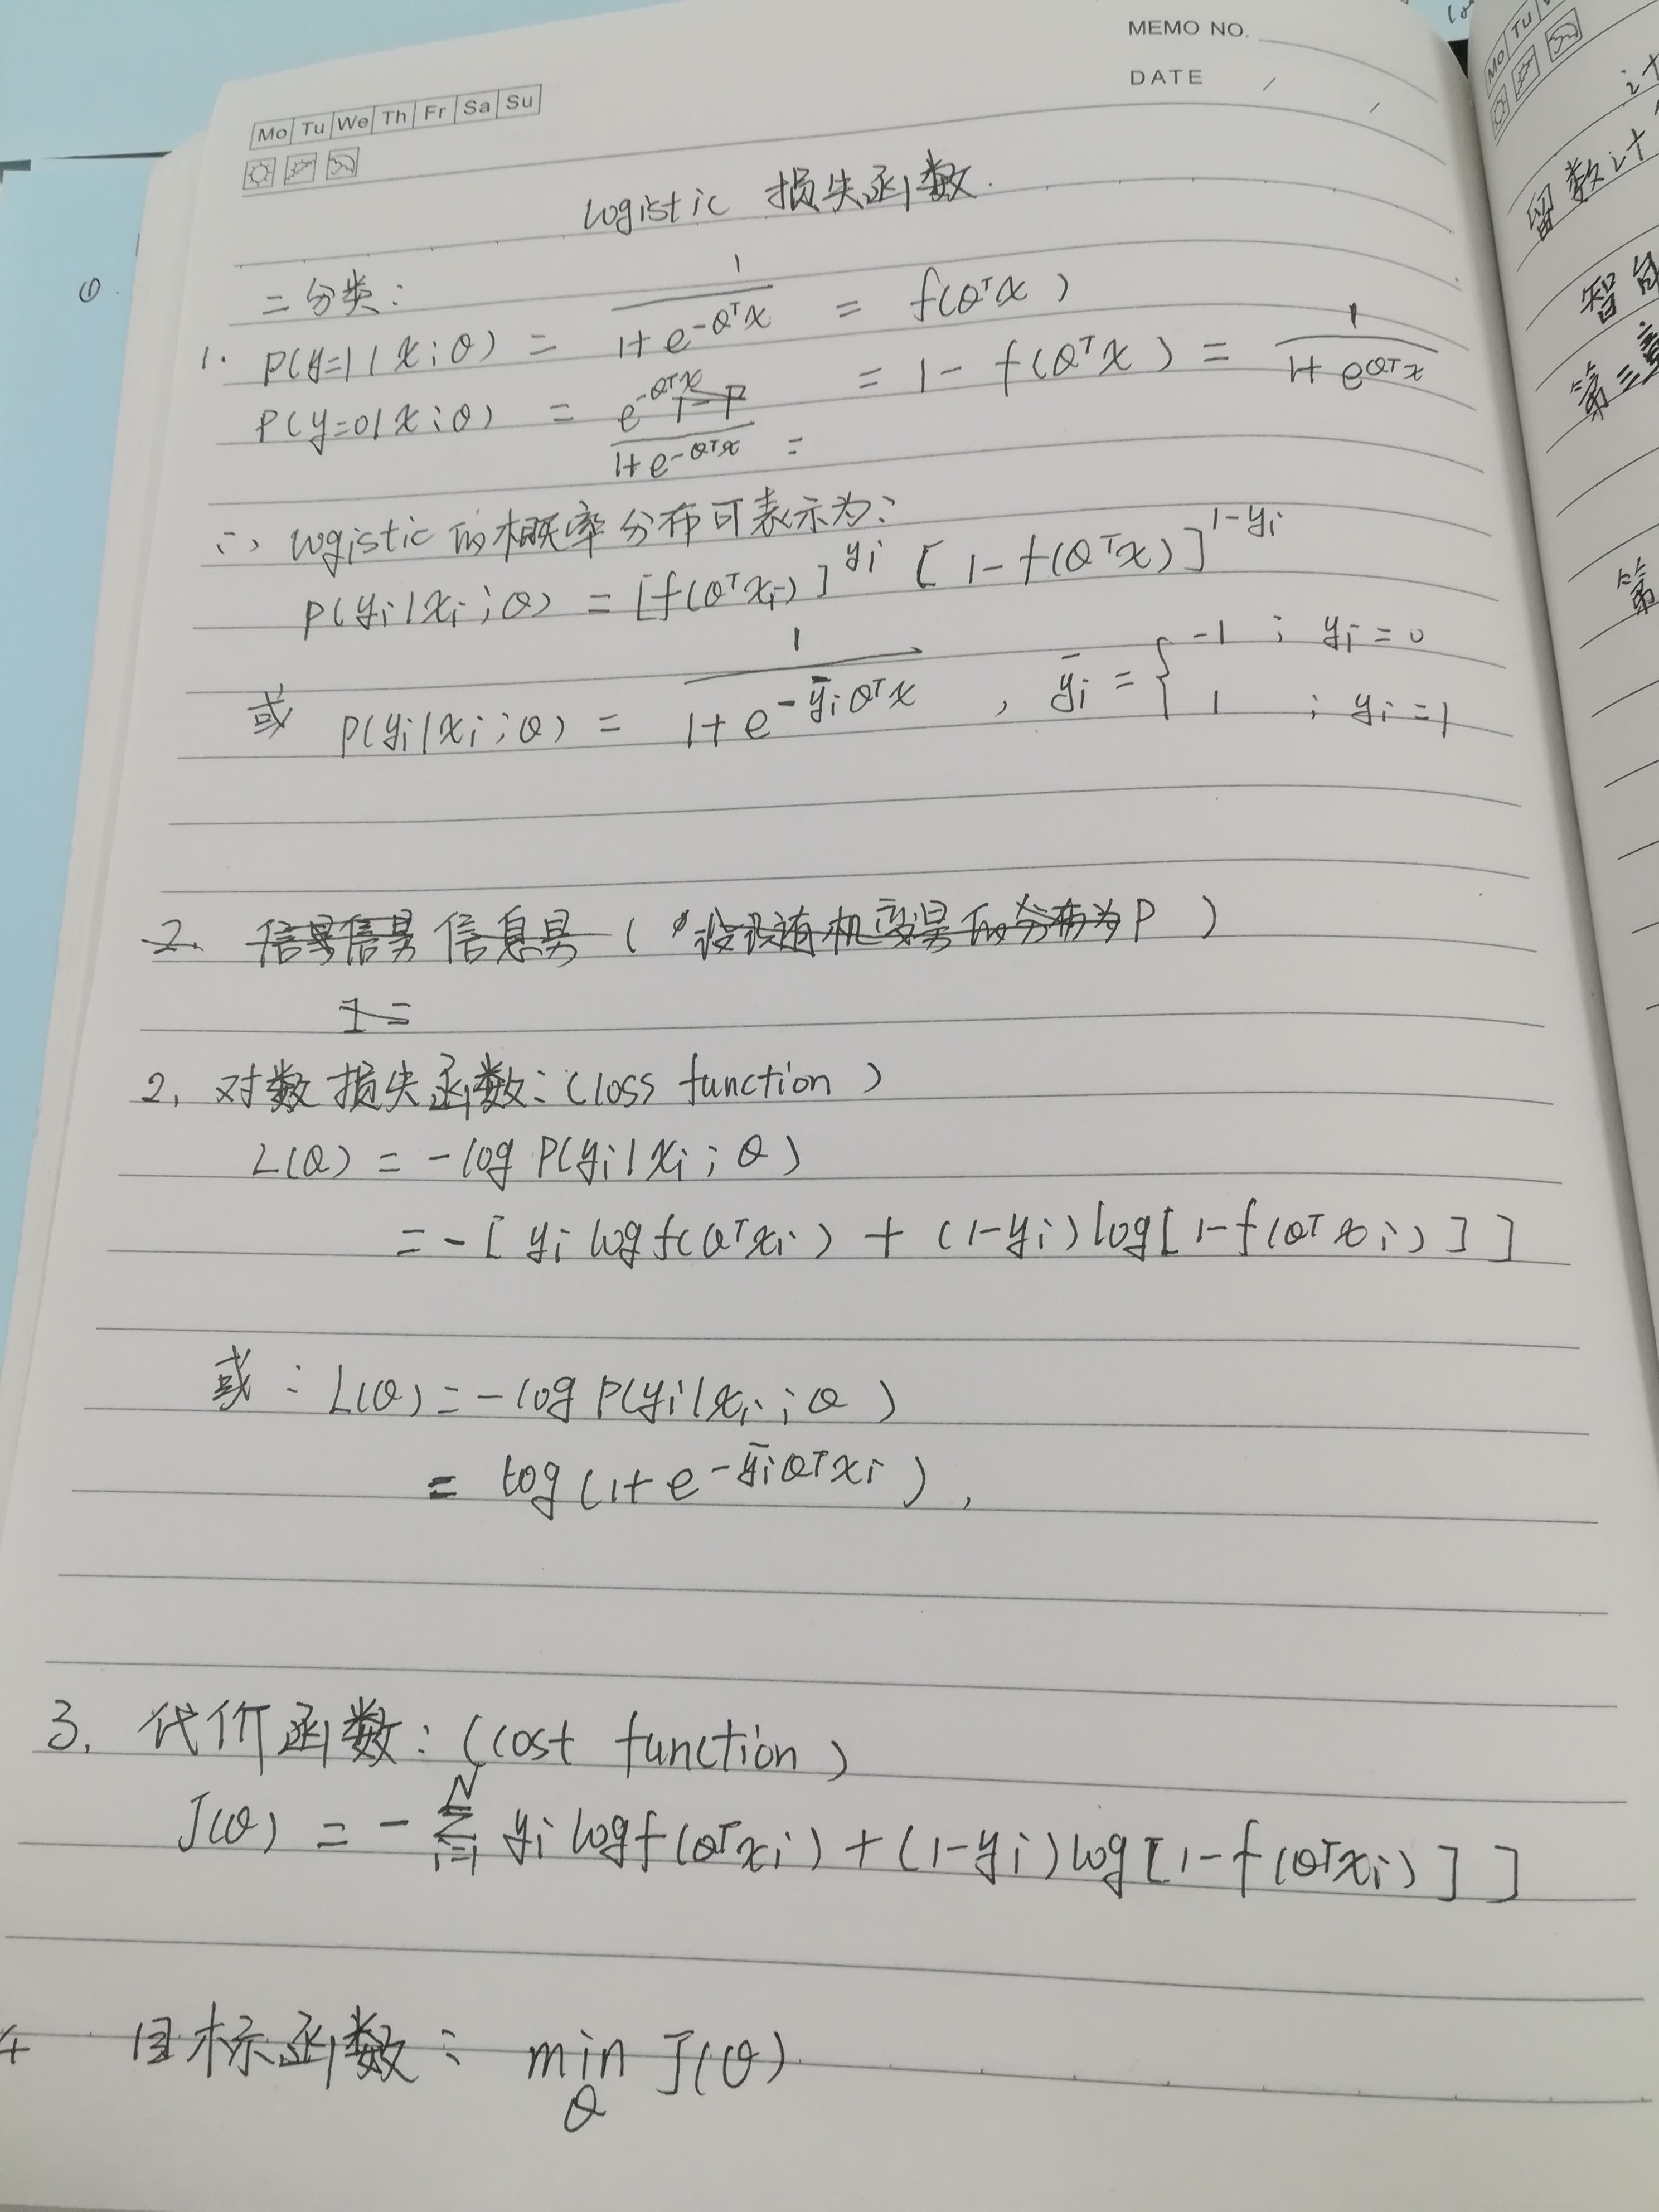 MEMO NO.
DATE / /
Mo Tu We Th Fr Sa Su
logistic 损失函数.
二分类:
1. P(y=1|x;θ) = 1/(1+e^{-θ^T x}) = f(θ^T x)
P(y=0|x;θ) = e^{-θ^T x}/(1+e^{-θ^T x}) = 1-f(θ^T x) = 1/(1+e^{θ^T x})
∴ logistic 的概率分布可表示为:
P(y_i|x_i;θ) = [f(θ^T x_i)]^{y_i} [1-f(θ^T x)]^{1-y_i}
或 P(y_i|x_i;θ) = 1/(1+e^{-ȳ_i θ^T x}) , ȳ_i = { -1 ; y_i=0
1 ; y_i=1
2. 信息
I=
2. 对数损失函数:(loss function)
L(θ) = -log P(y_i|x_i;θ)
= -[y_i log f(θ^T x_i) + (1-y_i) log[1-f(θ^T x_i)]]
或: L(θ) = -log P(y_i|x_i;θ)
= log(1+e^{-ȳ_i θ^T x_i}),
3. 代价函数:(cost function)
J(θ) = -∑_{i=1}^{N} y_i log f(θ^T x_i) + (1-y_i) log[1-f(θ^T x_i)]]
4 目标函数: min_θ J(θ)
Mo Tu
留数计
第三章
第